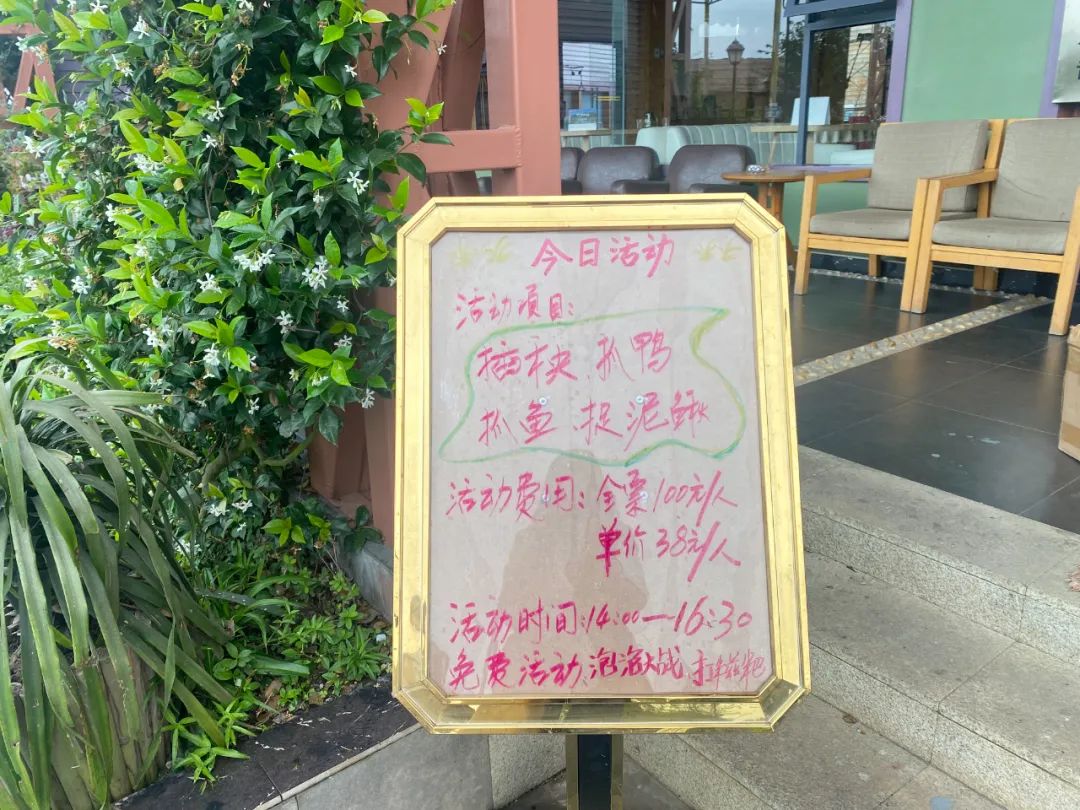 今日活动
活动项目:
插秧、抓鸭
抓鱼、捉泥鳅
活动费用: 全票100元/人
单价38元/人
活动时间:14:00—16:30
免费活动、泡泡大战、打糍粑